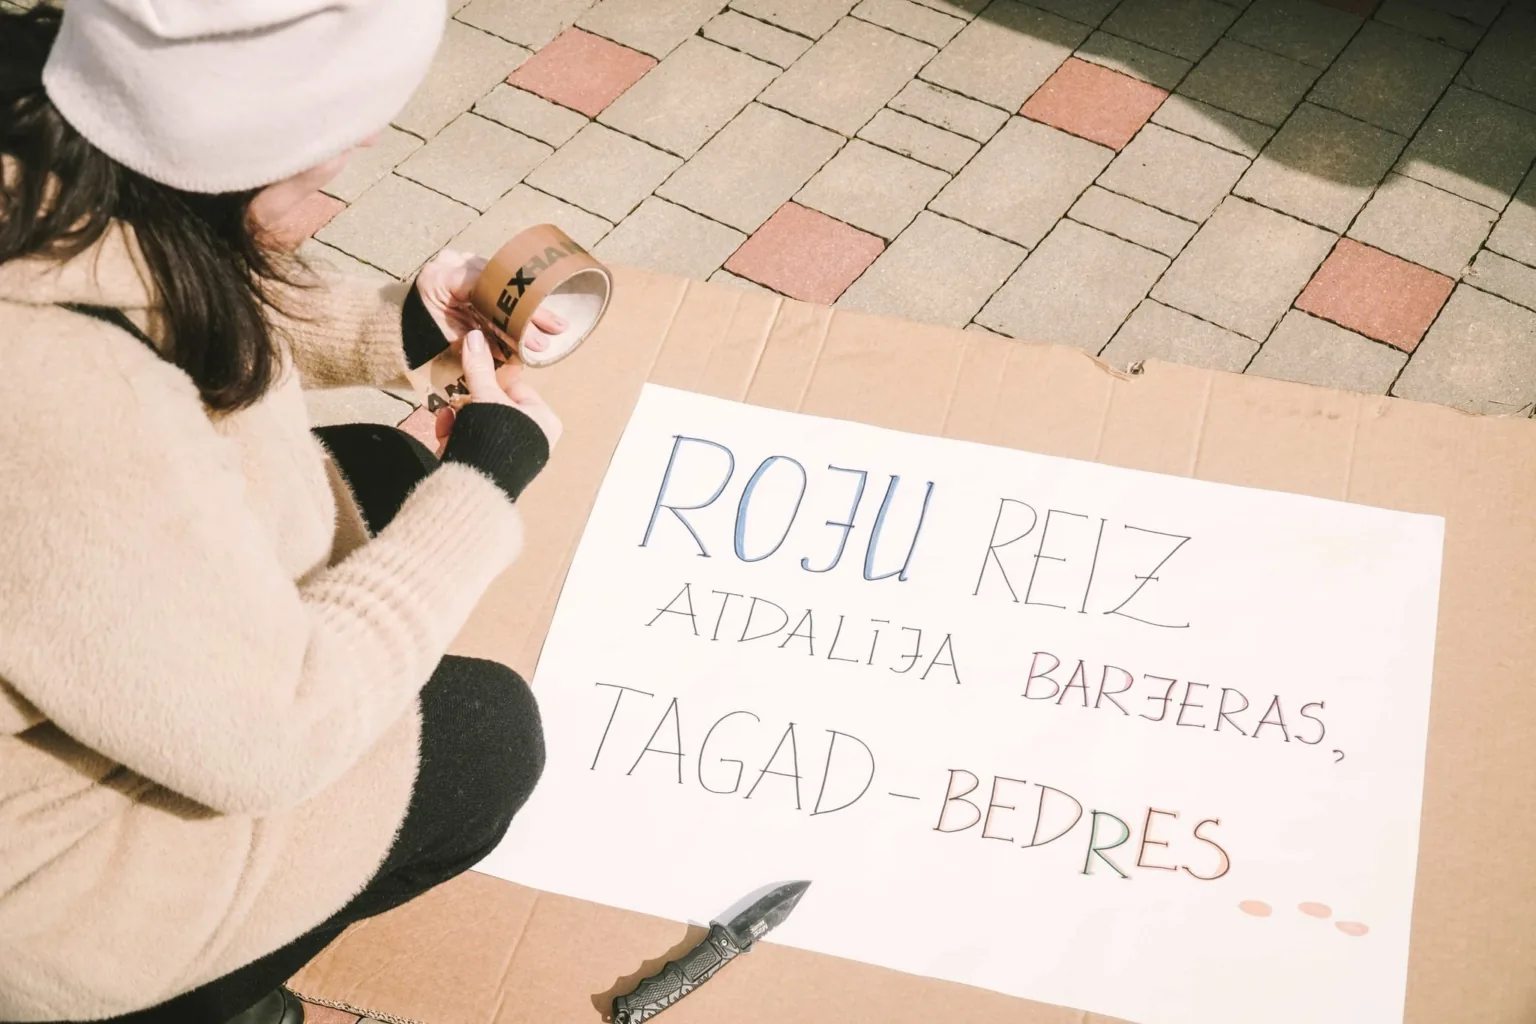 ROJU REIZ
ATDALĪJA BARJERAS,
TAGAD - BEDRES...